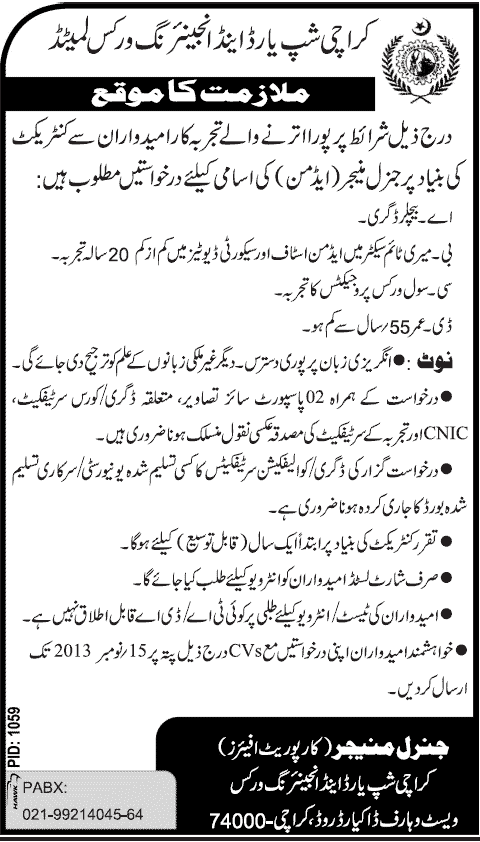 کراچی شپ یارڈ اینڈ انجینئرنگ ورکس لمیٹڈ
ملازمت کا موقع
درج ذیل شرائط پر پورا اترنے والے تجربہ کار امیدواران سے کنٹریکٹ
کی بنیاد پر جنرل منیجر (ایڈمن) کی اسامی کیلئے درخواستیں مطلوب ہیں:
اے۔ بیچلر ڈگری۔
بی۔ میری ٹائم سیکٹر میں ایڈمن اسٹاف اور سیکورٹی ڈیوٹیز میں کم از کم 20 سالہ تجربہ۔
سی۔ سول ورکس پروجیکٹس کا تجربہ۔
ڈی۔ عمر 55/سال سے کم ہو۔
نوٹ: ● انگریزی زبان پر پوری دسترس۔ دیگر غیر ملکی زبانوں کے علم کو ترجیح دی جائے گی۔
● درخواست کے ہمراہ 02 پاسپورٹ سائز تصاویر، متعلقہ ڈگری/کورس سرٹیفکیٹ،
CNIC اور تجربہ کے سرٹیفکیٹ کی مصدقہ عکسی نقول منسلک ہونا ضروری ہیں۔
● درخواست گزار کی ڈگری/کوالیفکیشن سرٹیفکیٹس کا کسی تسلیم شدہ یونیورسٹی/سرکاری تسلیم
شدہ بورڈ کا جاری کردہ ہونا ضروری ہے۔
● تقرر کنٹریکٹ کی بنیاد پر ابتداً ایک سال (قابل توسیع) کیلئے ہوگا۔
● صرف شارٹ لسٹڈ امیدواران کو انٹرویو کیلئے طلب کیا جائے گا۔
● امیدواران کی ٹیسٹ/انٹرویو کیلئے طلبی پر کوئی ٹی اے/ڈی اے قابل اطلاق نہیں ہے۔
● خواہشمند امیدواران اپنی درخواستیں مع CVs درج ذیل پتہ پر 15/نومبر 2013 تک
ارسال کردیں۔
جنرل منیجر (کارپوریٹ افیئرز)
کراچی شپ یارڈ اینڈ انجینئرنگ ورکس
ویسٹ وہارف ڈاکیارڈ روڈ، کراچی-74000
PID: 1059
HAWK
PABX:
021-99214045-64